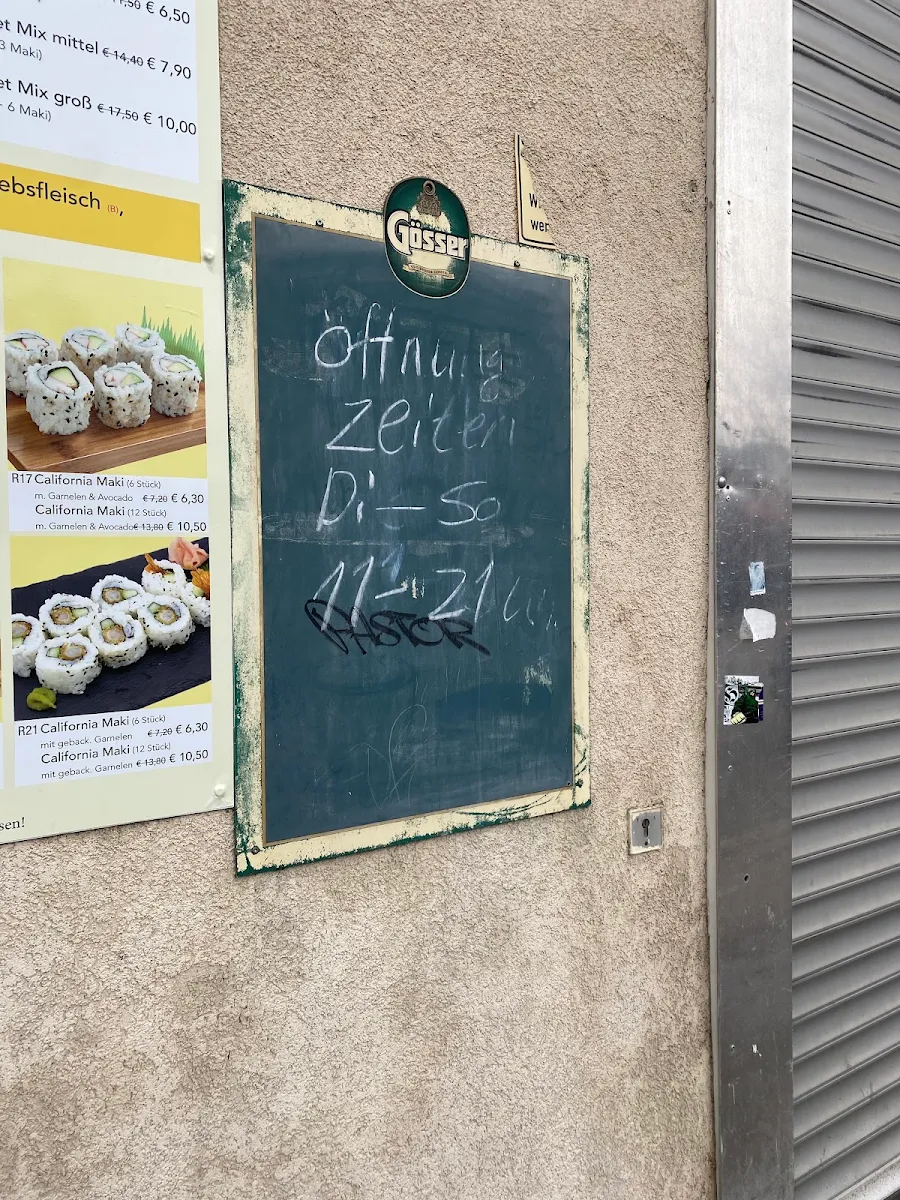 € 6,50
et Mix mittel € 14,40 € 7,90
3 Maki)
et Mix groß € 17,50 € 10,00
6 Maki)
ebsfleisch (B),
R17 California Maki (6 Stück)
m. Garnelen & Avocado € 7,20 € 6,30
California Maki (12 Stück)
m. Garnelen & Avocado € 13,80 € 10,50
R21 California Maki (6 Stück)
mit geback. Garnelen € 7,20 € 6,30
California Maki (12 Stück)
mit geback. Garnelen € 13,80 € 10,50
sen!
Gösser
Öffnung
zeiten
Di – So
11 - 21 u
W
wer